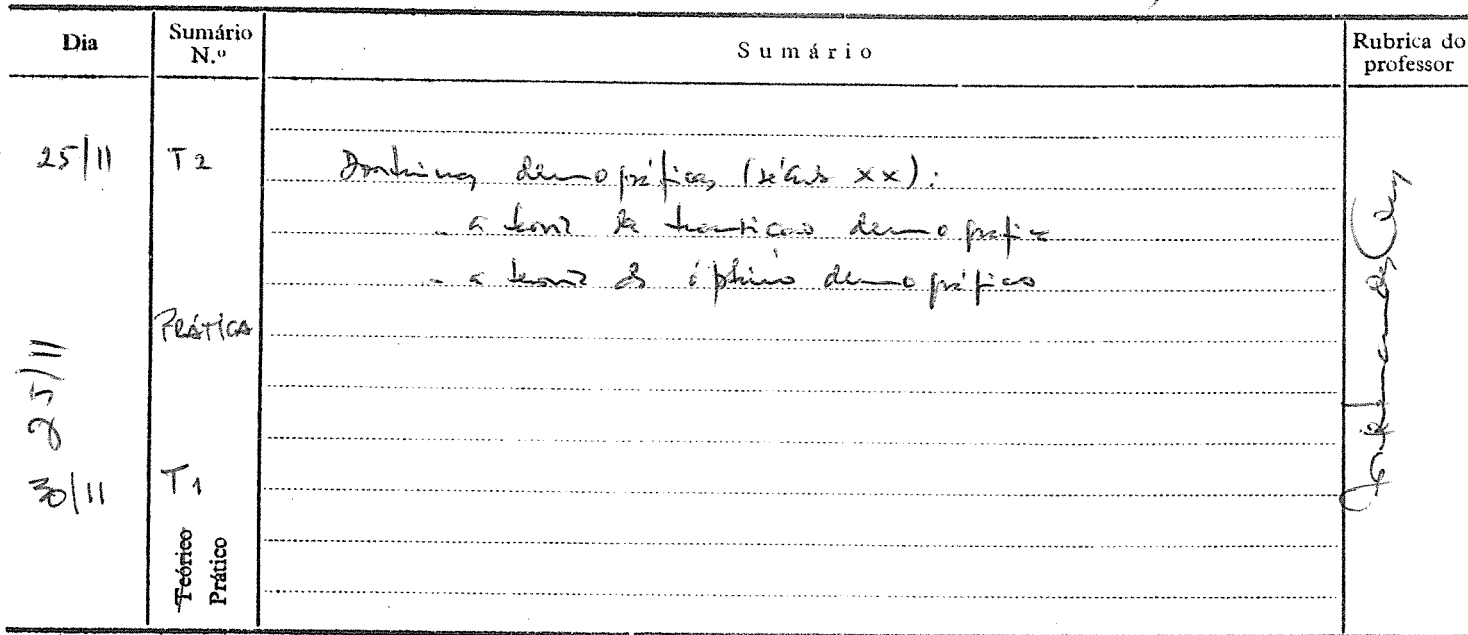 Dia
Sumário N.º
Sumário
Rubrica do professor
25/11 T2 Doutrinas demográficas (século XX):
- a teoria da transição demográfica
- a teoria do óptimo demográfico
25/11 PRÁTICA
30/11 T1
Teórico
Prático